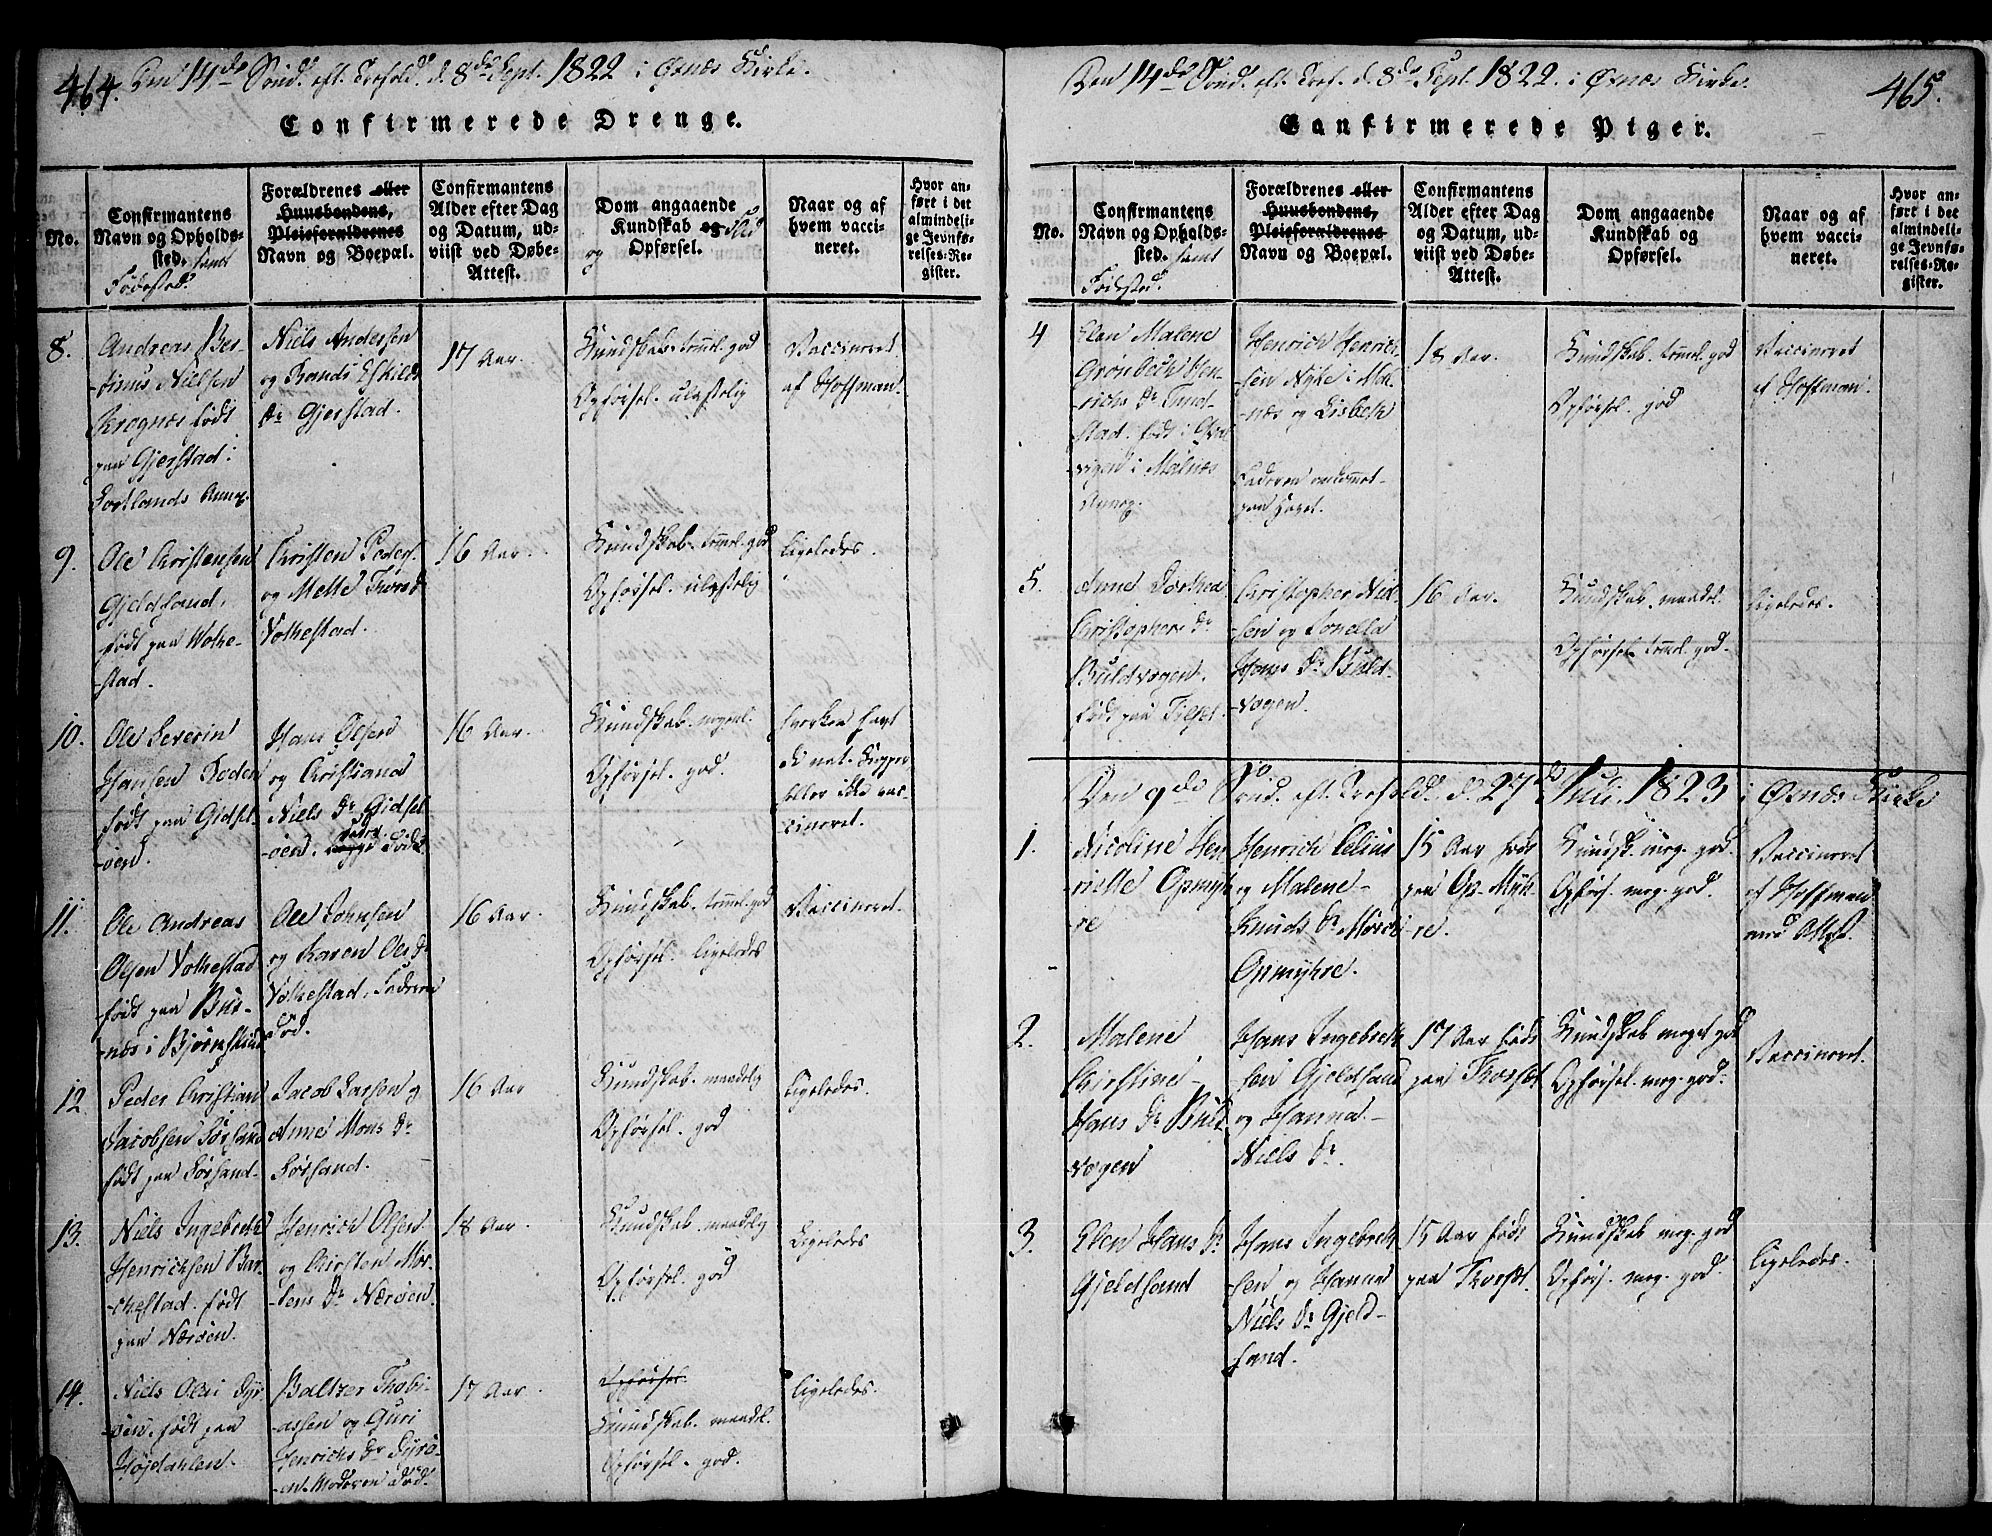 464. Den 14de Sønd. eft. Trefold. d. 8de Sept. 1822 i Øxnæs Kirke.
Confirmerede Drenge.
No.
Confirmantens
Navn og Opholds-
sted. samt
Fødested.
Forældrenes eller
Huusbondens,
Pleieforældrenes
Navn og Boepæl.
Confirmantens
Alder efter Dag
og Datum, ud-
viist ved Døbe-
Attest.
Dom angaaende
Kundskab og Flid
og Opførsel.
Naar og af
hvem vacci-
neret.
Hvor an-
ført i det
almindeli-
ge Jevnfø-
relses-Re-
gister.
8.
Andreas Ber-
-tinus Nielsen
Kragnæs født
paa Gjerstad i
Hortlands Annex.
Niels Andersen
og Randi Eskilds
Dr Gjerstad.
17 Aar.
Kundskab. temmel. god
Opførsel. ulastelig
Vaccineret
af Hoffman.
9.
Ole Christensen
Gjeldsand,
født paa Wolke-
stad.
Christen Peders.
og Mette Thors Dr
Volkestad.
16 Aar.
Kundskab. temmel. god
Opførsel. ulastelig
Ligeledes.
10.
Ole Severin
Hansen
født paa Gidsk-
-øen.
Hans Olsen
og Christiana
Niels Dr Gidsk-
-øen.
16 Aar.
Kundskab. megenl.
Opførsel. god.
hverken havt
de nat. Kopper
heller ikke vac-
cineret.
11.
Ole Andreas
Olsen Volkestad
født paa Bus-
-næs i Bjørnskind
Ole Johnsen
og Karen Ols Dr
Volkestad. Faderen
død.
16 Aar.
Kundskab. temmel. god
Opførsel. ligeledes
Vaccineret.
12.
Peder Christian
Jacobsen Sørsand
født paa Sørsand.
Jacob Larsen og
Anne Mons Dr
Sørsand.
16 Aar
Kundskab. maadelig
Opførsel. god
Ligeledes.
13.
Niels Ingebreth
Henrichsen Bar-
-ckestad. født
paa Nærøen.
Henrich Olsen
og Chirsten Mor-
-tens Dr Nærøen.
18 Aar.
Kundskab. maadelig
Opførsel. god
Ligeledes
14.
Niels Olai Dyr-
øen. født paa
Højdahlen.
Baltzer Thobi-
assen og Guri
Henrichs Dr Dyrø-
-en. Moderen død.
17 Aar.
Opførsel.
Kundskab. maadel.
Opførsel. god.
Ligeledes.
Den 14de Sønd. eft. Tref. d. 8de Sept. 1822. i Øxnæs Kirke.
465.
Confirmerede Piger.
No.
Confirmantens
Navn og Opholds-
sted. samt
Fødested.
Forældrenes eller
Huusbondens,
Pleieforældrenes
Navn og Boepæl.
Confirmantens
Alder efter Dag
og Datum, ud-
viist ved Døbe-
Attest.
Dom angaaende
Kundskab og
Opførsel.
Naar og af
hvem vacci-
neret.
Hvor an-
ført i det
almindeli-
ge Jevnfø-
relses-Re-
gister.
4
Elen Malene
Grønbech Hen-
-richs Dr Tund-
stad. født i
-vigen i Malnæs
Annex.
Henrich Henrich-
-sen Nyke i Mal-
-næs og Lisbeth
Faderen omkommet
paa Havet.
18 Aar.
Kundskab. temmel. god
Opførsel. god
Vaccineret
af Hoffman.
5.
Anne Dorthea
Christophers Dr
Buldvogen.
født paa Tilset.
Christopher Niel-
-sen og Ponella
Hans Dr Buld-
-vogen.
16 Aar.
Kundskab. maadel.
Opførsel temmel. god.
Ligeledes.
Den 9de Sønd. eft. Trefold. d. 27de Juli. 1823 i Øxnæs Kirke
1.
Nicoline Hen-
-riette Opmyh-
re
Henrich Celius
og Malene
Knuds Dr Moer i
Opmyhre.
15 Aar født
paa Op-Myh-
-re.
Kundsk. meg. god.
Opførs. meg. god.
Vaccineret
af Hoffman
med Attest.
2.
Malene
Chirstine
Hans Dr Buld-
vogen
Hans Ingebreth-
sen Gjeldsand
og Hanna
Niels Dr.
17 Aar født
paa Thorset
Kundskab meget god
Opførsel. meg. god.
Vaccineret.
3.
Elen Hans Dr
Gjeldsand
Hans Ingebreth-
sen og Hanna
Niels Dr Gjeld-
sand.
15 Aar født
paa Thorset.
Kundskab meg. god
Opførs. meg. god.
Ligeledes.